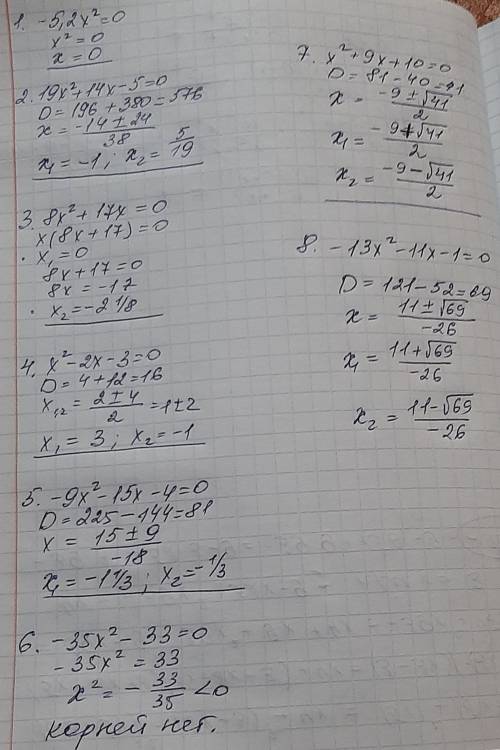 1. -5,2x²=0
x²=0
x=0
2. 19x²+14x-5=0
D=196+380=576
x= (-14±24)/38
x₁=-1; x₂= 5/19
3. 8x²+17x=0
x(8x+17)=0
x₁=0
8x+17=0
8x=-17
x₂=-2 1/8
4. x²-2x-3=0
D=4+12=16
x₁,₂= (2±4)/2 =1±2
x₁=3; x₂=-1
5. -9x²-15x-4=0
D=225-144=81
x= (15±9)/-18
x₁=-1 1/3; x₂=-1/3
6. -35x²-33=0
-35x²=33
x²=- 33/35 <0
корней нет.
7. x²+9x+10=0
D=81-40=41
x= (-9±√41)/2
x₁= (-9+√41)/2
x₂= (-9-√41)/2
8. -13x²-11x-1=0
D=121-52=69
x= (11±√69)/-26
x₁= (11+√69)/-26
x₂= (11-√69)/-26